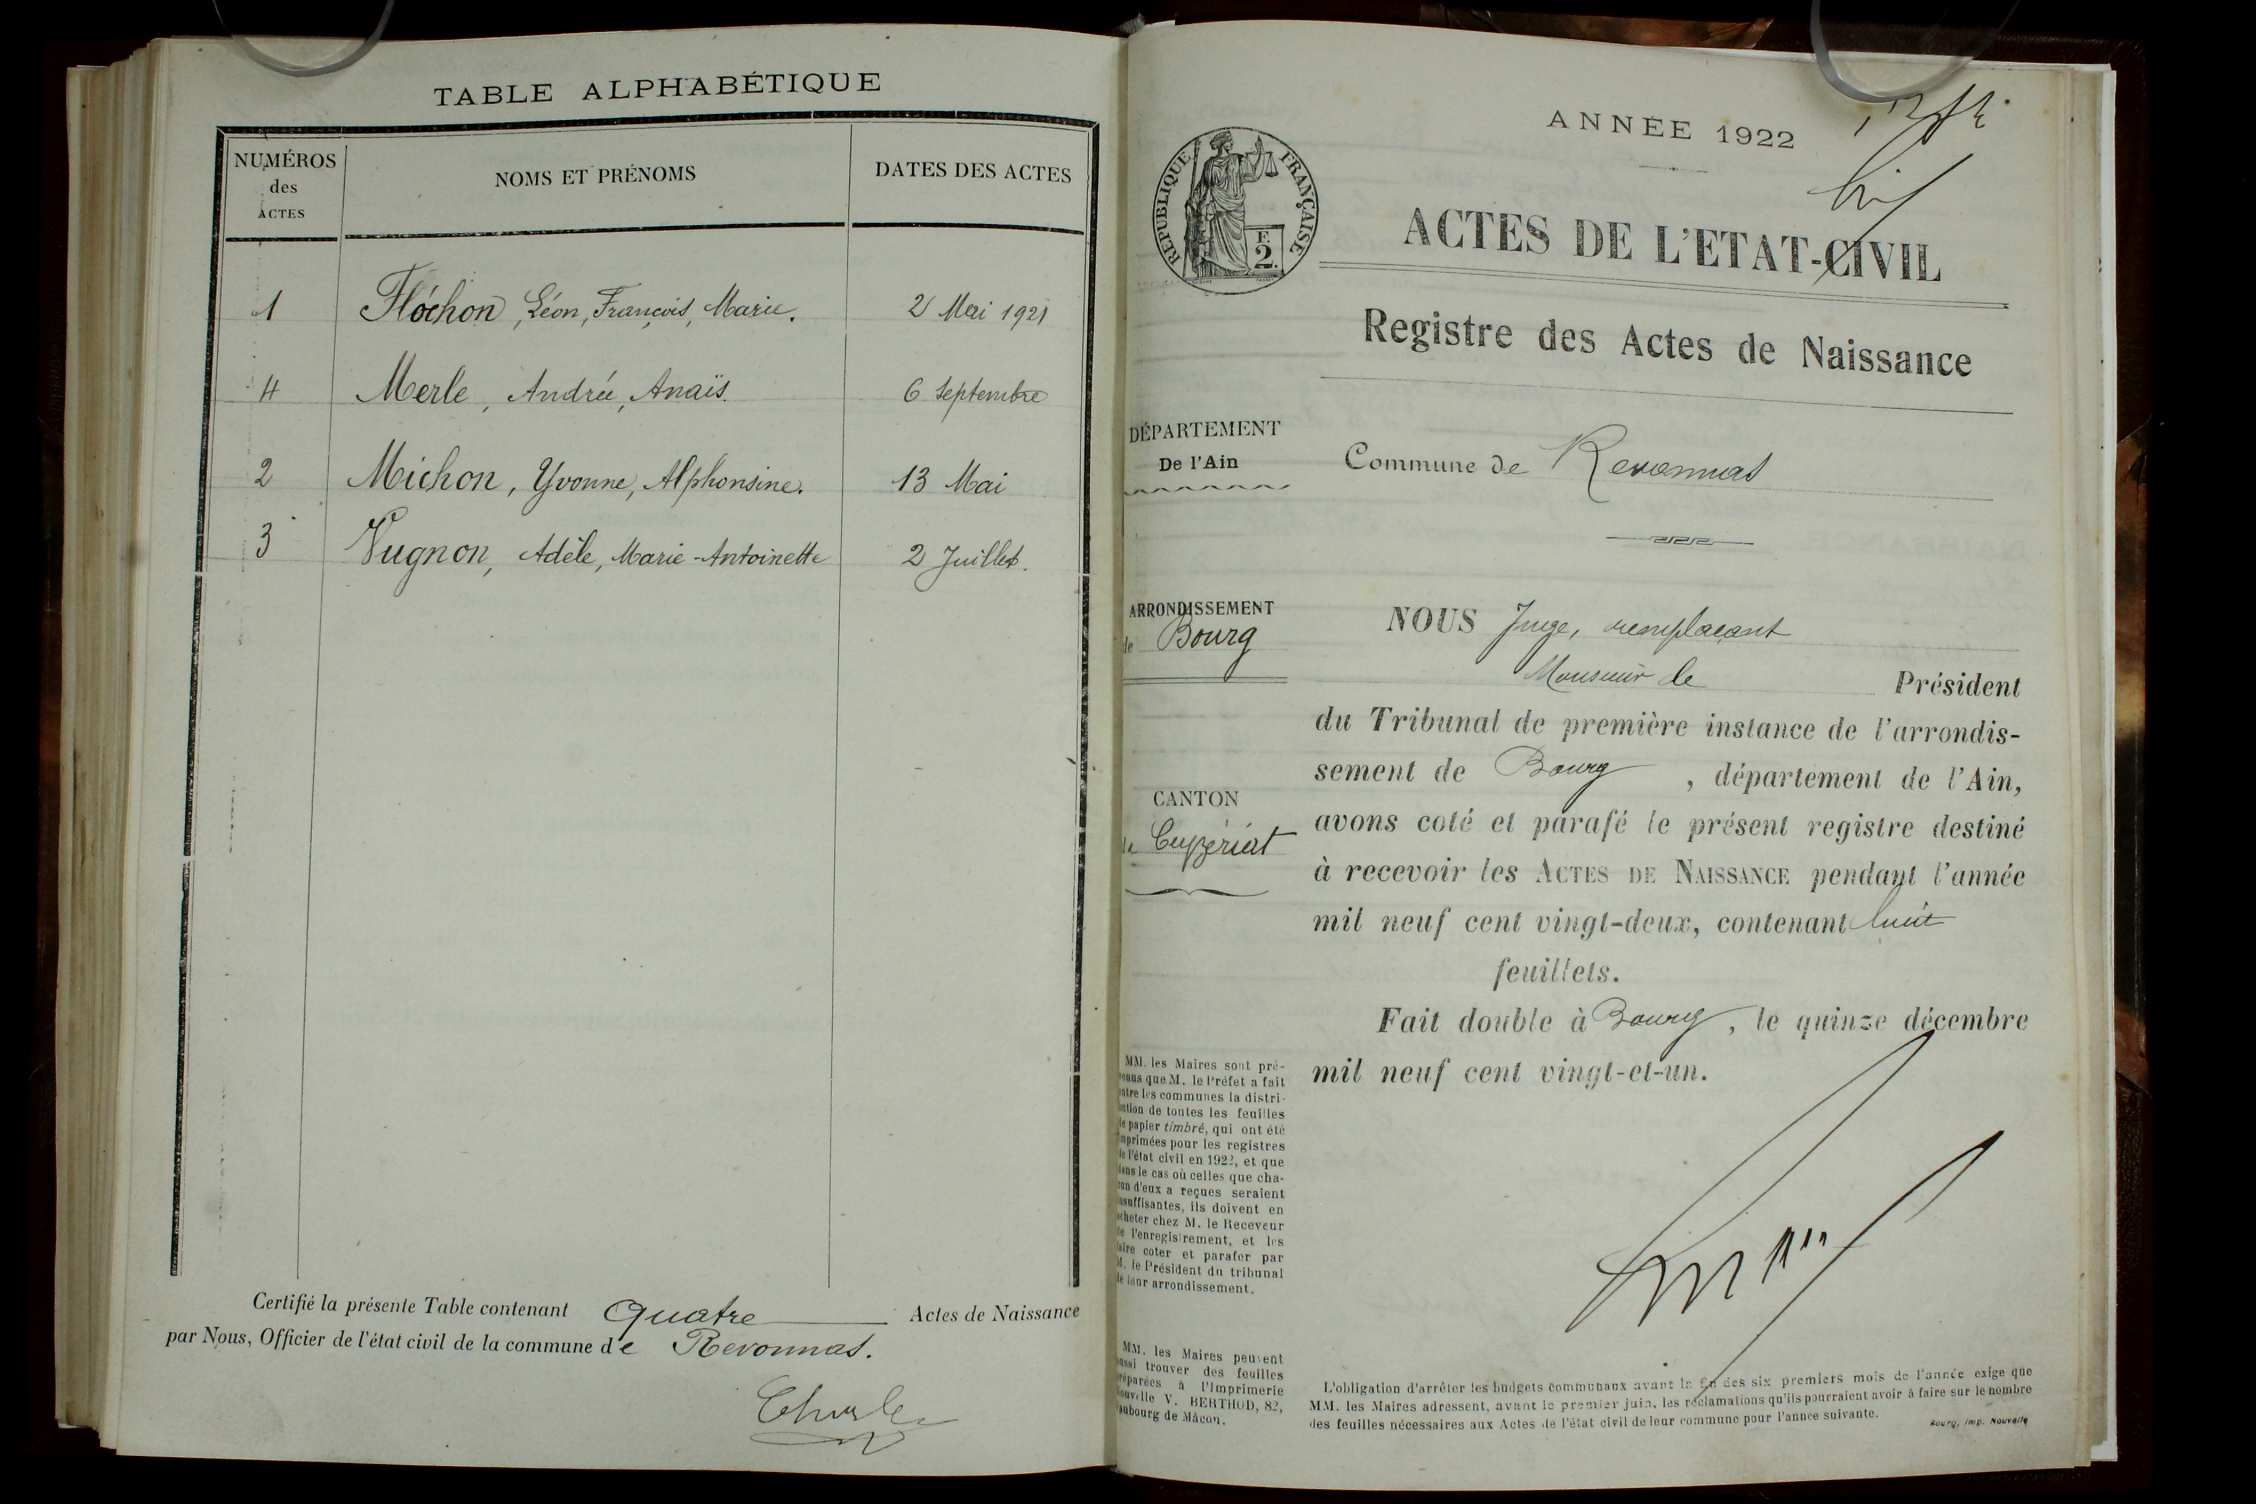 TABLE ALPHABÉTIQUE
NUMÉROS des ACTES
NOMS ET PRÉNOMS
DATES DES ACTES
1 Flochon, Léon, François, Marie. 2 Mai 1921
4 Merle, Andrée, Anaïs. 6 Septembre
2 Michon, Yvonne, Alphonsine. 13 Mai
3 Vugnon, Adèle, Marie-Antoinette 2 Juillet.
Certifié la présente Table contenant quatre Actes de Naissance
par Nous, Officier de l'état civil de la commune de Revonnas.
ANNÉE 1922
RÉPUBLIQUE FRANÇAISE
F. 2.
ACTES DE L'ETAT-CIVIL
Registre des Actes de Naissance
DÉPARTEMENT
De l'Ain
Commune de Revonnas
ARRONDISSEMENT
de Bourg
CANTON
de Ceyzériat
NOUS Juge, remplaçant
Monsieur le Président
du Tribunal de première instance de l'arrondis-
sement de Bourg, département de l'Ain,
avons coté et parafé le présent registre destiné
à recevoir les ACTES DE NAISSANCE pendant l'année
mil neuf cent vingt-deux, contenant huit
feuillets.
Fait double à Bourg, le quinze décembre
mil neuf cent vingt-et-un.
MM. les Maires sont pré-
venus que M. le Préfet a fait
entre les communes la distri-
bution de toutes les feuilles
de papier timbré, qui ont été
imprimées pour les registres
de l'état civil en 1922, et que
dans le cas où celles que cha-
cun d'eux a reçues seraient
insuffisantes, ils doivent en
acheter chez M. le Receveur
de l'enregistrement, et les
faire coter et parafer par
M. le Président du tribunal
de leur arrondissement.
MM. les Maires peuvent
aussi trouver des feuilles
préparées à l'Imprimerie
Nouvelle V. BERTHOD, 82,
faubourg de Mâcon.
L'obligation d'arrêter les budgets communaux avant la fin des six premiers mois de l'année exige que
MM. les Maires adressent, avant le premier juin, les réclamations qu'ils pourraient avoir à faire sur le nombre
des feuilles nécessaires aux Actes de l'état civil de leur commune pour l'année suivante.
Bourg, Imp. Nouvelle